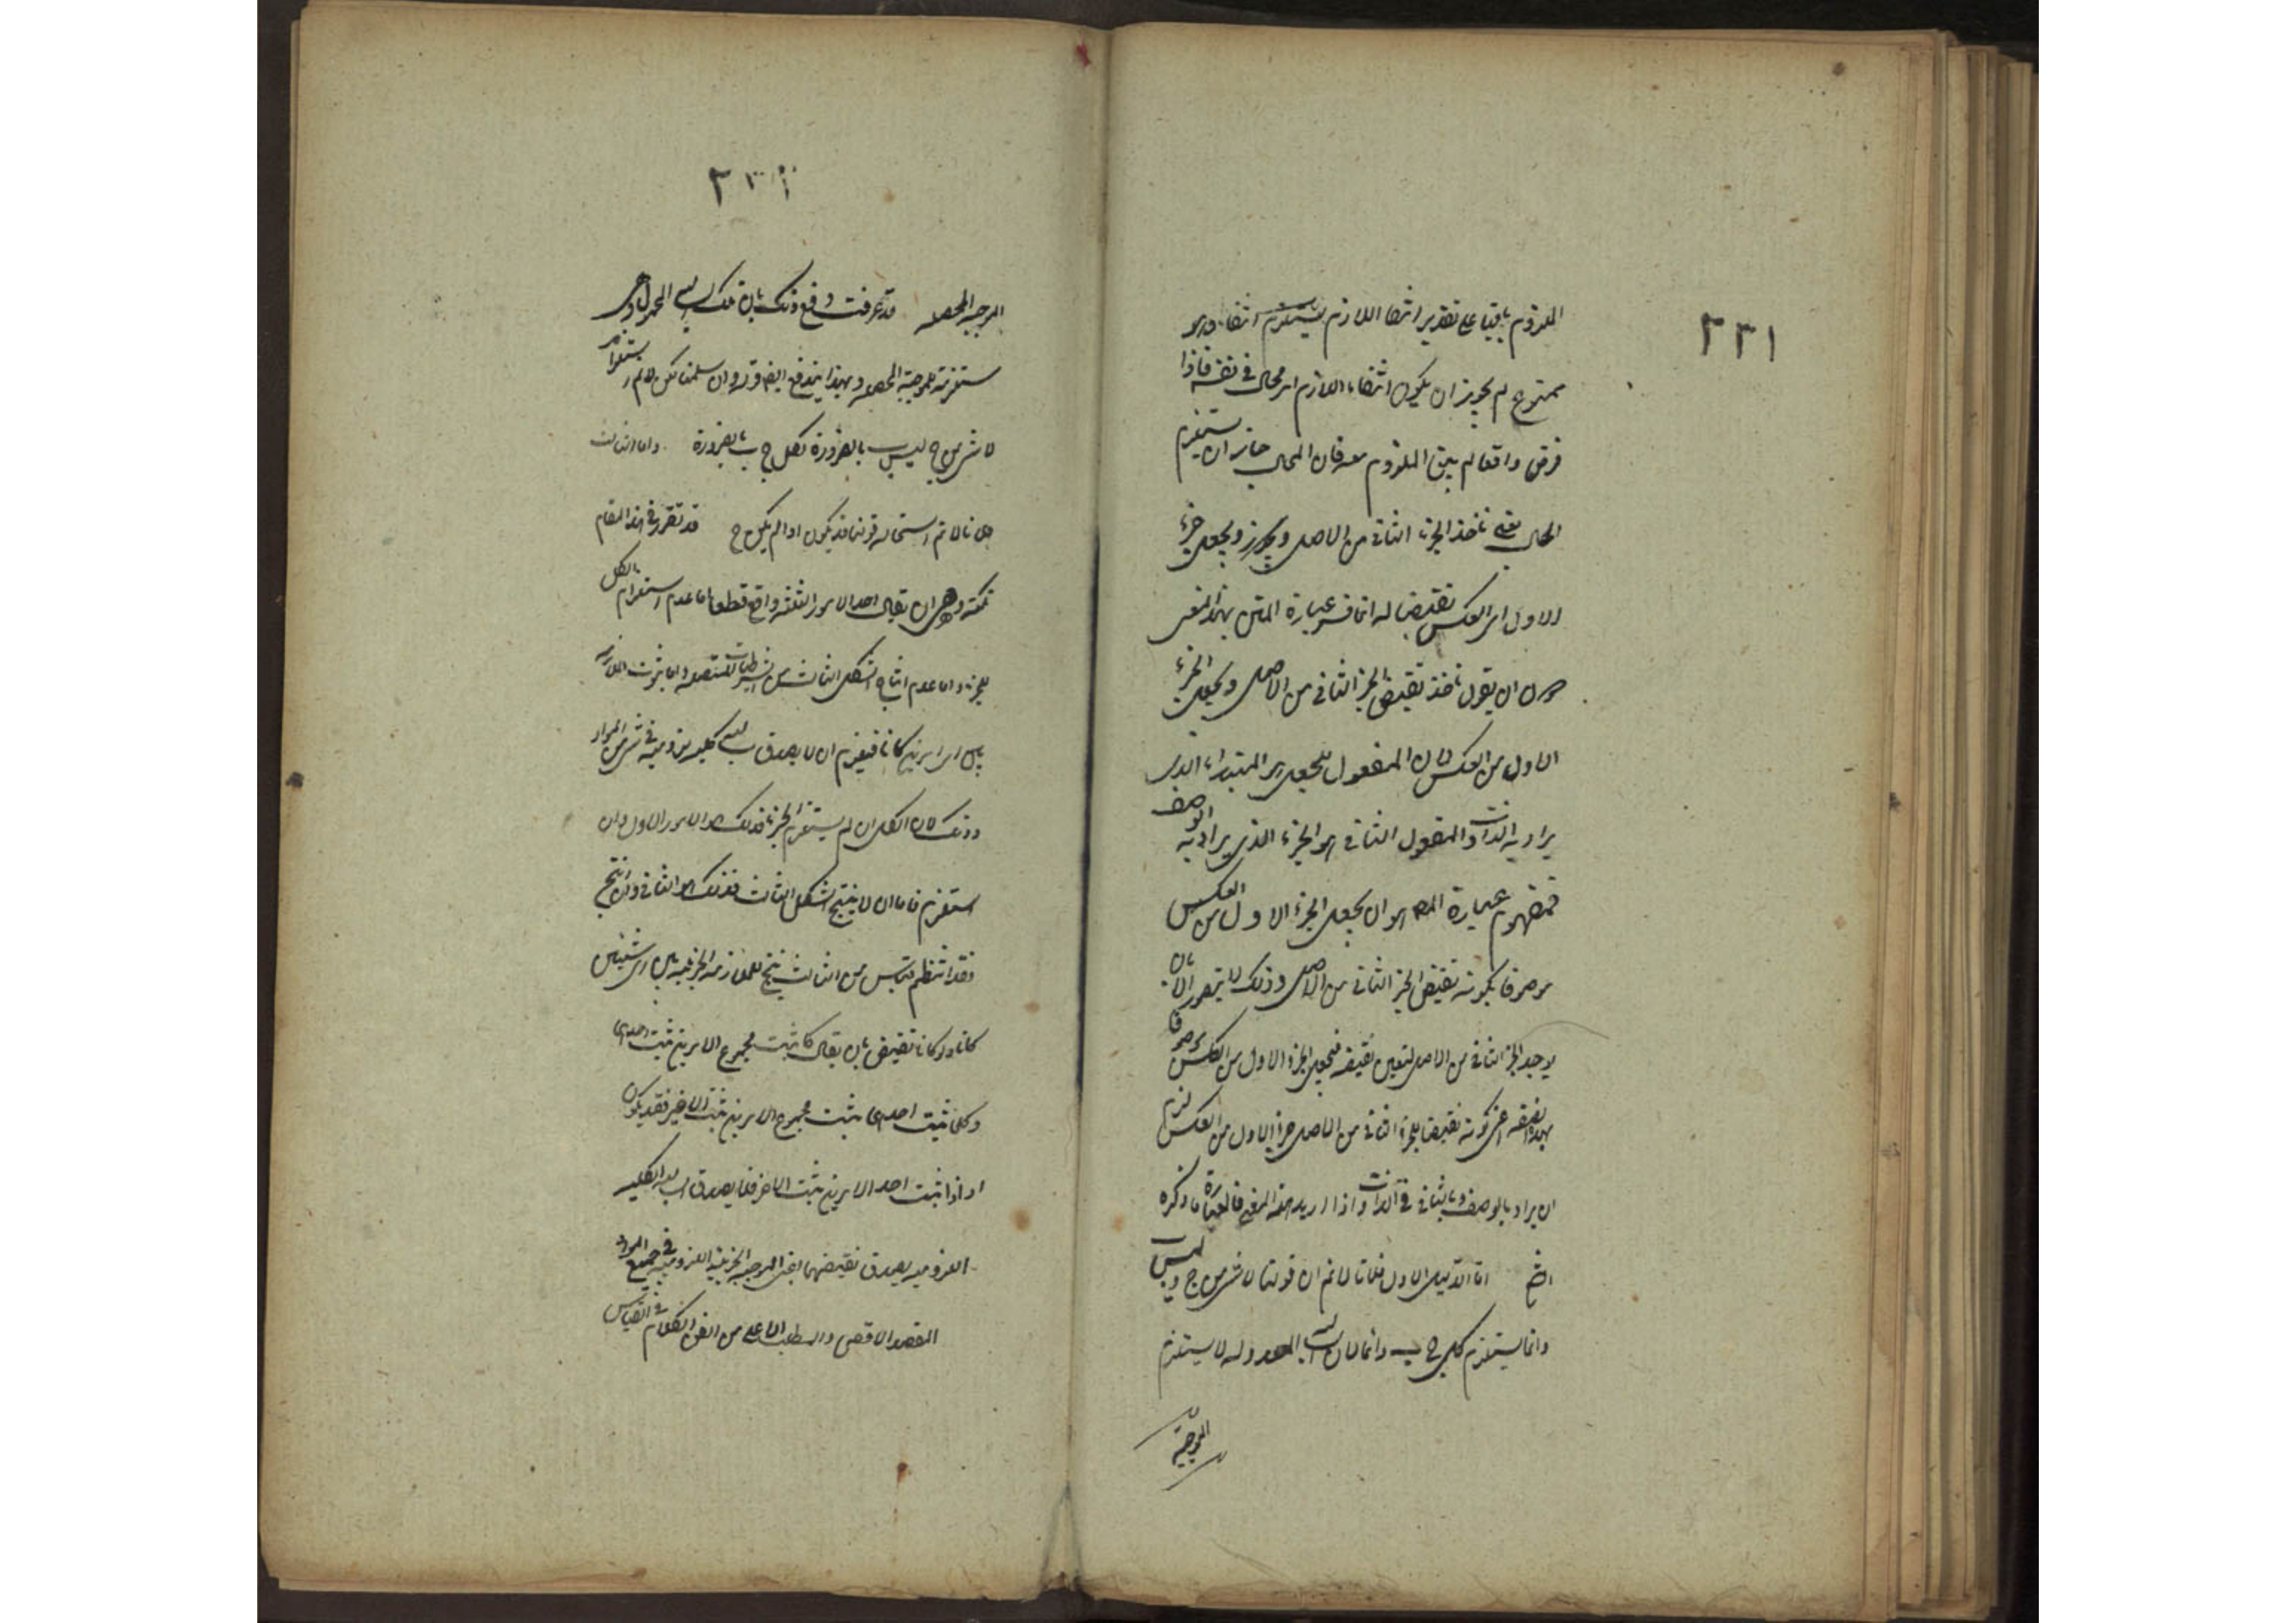 ٢٣١
الملزوم باقيا على تقدير انتفاء اللازم يستلزم انتفاءه وهو
ممنوع لم يجوز ان يكون انتفاء اللازم امر محال فى نفسه فاذا
فرض واقعا لم يبق الملزوم معه فان المحال جاز ان يستلزم
المحال نعنى ناخذ الجزء الثانى من الاصل ويجعل جزء
الاول اى العكس نقيضا له انما فسر عبارة المتن بهذا المعنى
ان يقول ناخذ نقيض الجزء الثانى من الاصل ويجعل الجزء
الاول من العكس لان المفعول للجعل هو المبتداء الذى
يراد به الذات والمفعول الثانى هو الجزء الذى يراد به الوصف
فمفهوم عبارة المص هو ان يجعل الجزء الاول من العكس
موصوفا بكونه نقيض الجزء الثانى من الاصل وذلك لا يتصور الا بان
يوجد الجزء الثانى من الاصل لتعين نقيضه فيجعل الجزء الاول من العكس موصوفا
بهذه الصفة اعنى كونه نقيضا للجزء الثانى من الاصل جزء الاول من العكس لزم
ان يراد بالوصف وبالثانى الذات واذا اريد هذا المعنى فالعبارة ما ذكره
الش اما الدليل الاول فلانا لا نم ان قولنا لا شىء من ج ليس ب
وانما يستلزم كل ج ب وانما لان السالبة المعدولة لا يستلزم
الموجبة
٢٣٢
الموجبة المحصلة قد عرفت دفع ذلك بان تلك السالبة المحمول وهى
مستلزمة للموجبة المحصلة وبهذا يندفع ايضا قوله وان سلمناه لكن لا نم استلزام
لا شىء من ج ليس ب بالضرورة لكل ج ب بالضرورة واما الثالث
فلانا لا نم استحالة قولنا قد يكون اذا لم يكن ج قد تقرر فى هذا المقام
نكتة وهى ان يقال احد الامور الثلثة واقع قطعا اما عدم استلزام الكل
للجزء واما عدم انتاج الشكل الثالث من الشرطيات المتصلة واما ثبوت الملازمة
بين اى امرين كانا فيلزم ان لا يصدق سالبة كلية لزومية فى شىء من المواد
وذلك لان الكل ان لم يستلزم الجزء فذلك هو الامر الاول وان
استلزم فاما ان لا ينتج الشكل الثالث فذلك هو الثانى وان انتج
فقد انتظم قياس من الثالث ينتج الملازمة الجزئية بين اى شيئين
كانا ولو كانا نقيضين بان يقال كلما ثبت مجموع الامرين ثبت احدهما
وكلما ثبت مجموع الامرين ثبت الاخر فقد يكون
اذا ثبت احد الامرين ثبت الاخر فلا يصدق السالبة الكلية
اللزومية يصدق نقيضها اعنى الموجبة الجزئية اللزومية فى جميع المواد
المقصد الاقصى والمطلب الاعلى من الفن الكلام فى القياس